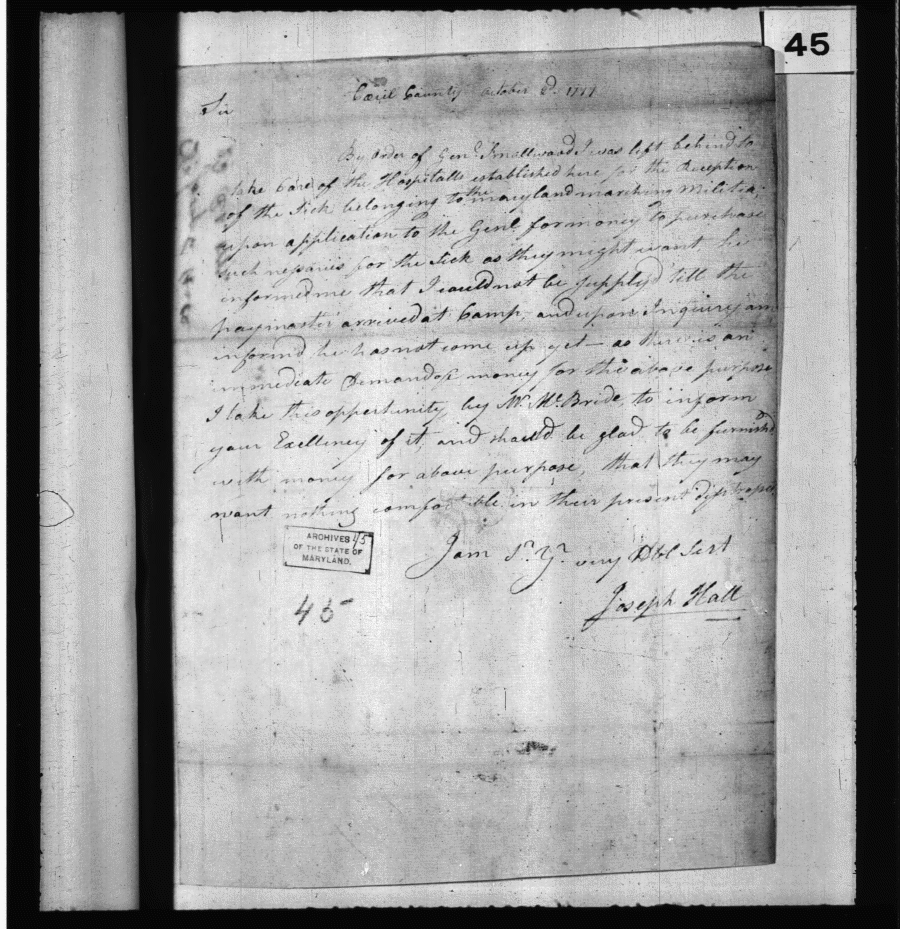 45
Cæcil County October 1777
Sir
By Order of Genl Smallwood I was left behind to
take Care of the Hospitalls established here for the Reception
of the Sick belonging to the maryland marching Militia;
upon application to the Genl for money to purchase
such nessaries for the Sick as they might want he
informed me that I could not be supplyd till the
paymaster arrived at Camp, and upon Inquirey am
informd he has not come up yet — as there is an
immediate Demand of money for the above purpose
I take this oppertunity by Mr McBride, to inform
your Excellency of it, and should be glad to be furnishd
with money for above purpose, that they may
want nothing comfortable in their present distresses
I am Sr Yr very Hble Sert
Joseph Hall
ARCHIVES 45
OF THE STATE OF
MARYLAND.
45